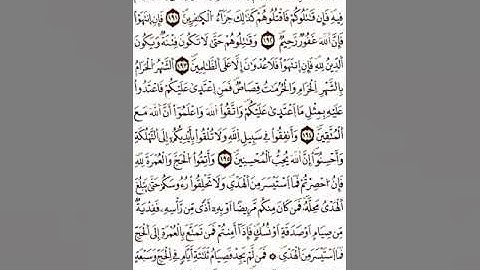 فِيهِ فَإِن قَٰتَلُوكُمْ فَٱقْتُلُوهُمْ كَذَٰلِكَ جَزَآءُ ٱلْكَٰفِرِينَ ١٩١ فَإِنِ ٱنتَهَوْا۟
فَإِنَّ ٱللَّهَ غَفُورٌ رَّحِيمٌ ١٩٢ وَقَٰتِلُوهُمْ حَتَّىٰ لَا تَكُونَ فِتْنَةٌ وَيَكُونَ
ٱلدِّينُ لِلَّهِ فَإِنِ ٱنتَهَوْا۟ فَلَا عُدْوَٰنَ إِلَّا عَلَى ٱلظَّٰلِمِينَ ١٩٣ ٱلشَّهْرُ ٱلْحَرَامُ
بِٱلشَّهْرِ ٱلْحَرَامِ وَٱلْحُرُمَٰتُ قِصَاصٌ فَمَنِ ٱعْتَدَىٰ عَلَيْكُمْ فَٱعْتَدُوا۟
عَلَيْهِ بِمِثْلِ مَا ٱعْتَدَىٰ عَلَيْكُمْ وَٱتَّقُوا۟ ٱللَّهَ وَٱعْلَمُوٓا۟ أَنَّ ٱللَّهَ مَعَ
ٱلْمُتَّقِينَ ١٩٤ وَأَنفِقُوا۟ فِى سَبِيلِ ٱللَّهِ وَلَا تُلْقُوا۟ بِأَيْدِيكُمْ إِلَى ٱلتَّهْلُكَةِ
وَأَحْسِنُوٓا۟ إِنَّ ٱللَّهَ يُحِبُّ ٱلْمُحْسِنِينَ ١٩٥ وَأَتِمُّوا۟ ٱلْحَجَّ وَٱلْعُمْرَةَ لِلَّهِ
فَإِنْ أُحْصِرْتُمْ فَمَا ٱسْتَيْسَرَ مِنَ ٱلْهَدْىِ وَلَا تَحْلِقُوا۟ رُءُوسَكُمْ حَتَّىٰ يَبْلُغَ
ٱلْهَدْىُ مَحِلَّهُۥ فَمَن كَانَ مِنكُم مَّرِيضًا أَوْ بِهِۦٓ أَذًى مِّن رَّأْسِهِۦ فَفِدْيَةٌ
مِّن صِيَامٍ أَوْ صَدَقَةٍ أَوْ نُسُكٍ فَإِذَآ أَمِنتُمْ فَمَن تَمَتَّعَ بِٱلْعُمْرَةِ إِلَى ٱلْحَجِّ
فَمَا ٱسْتَيْسَرَ مِنَ ٱلْهَدْىِ فَمَن لَّمْ يَجِدْ فَصِيَامُ ثَلَٰثَةِ أَيَّامٍ فِى ٱلْحَجِّ وَسَبْعَةٍ